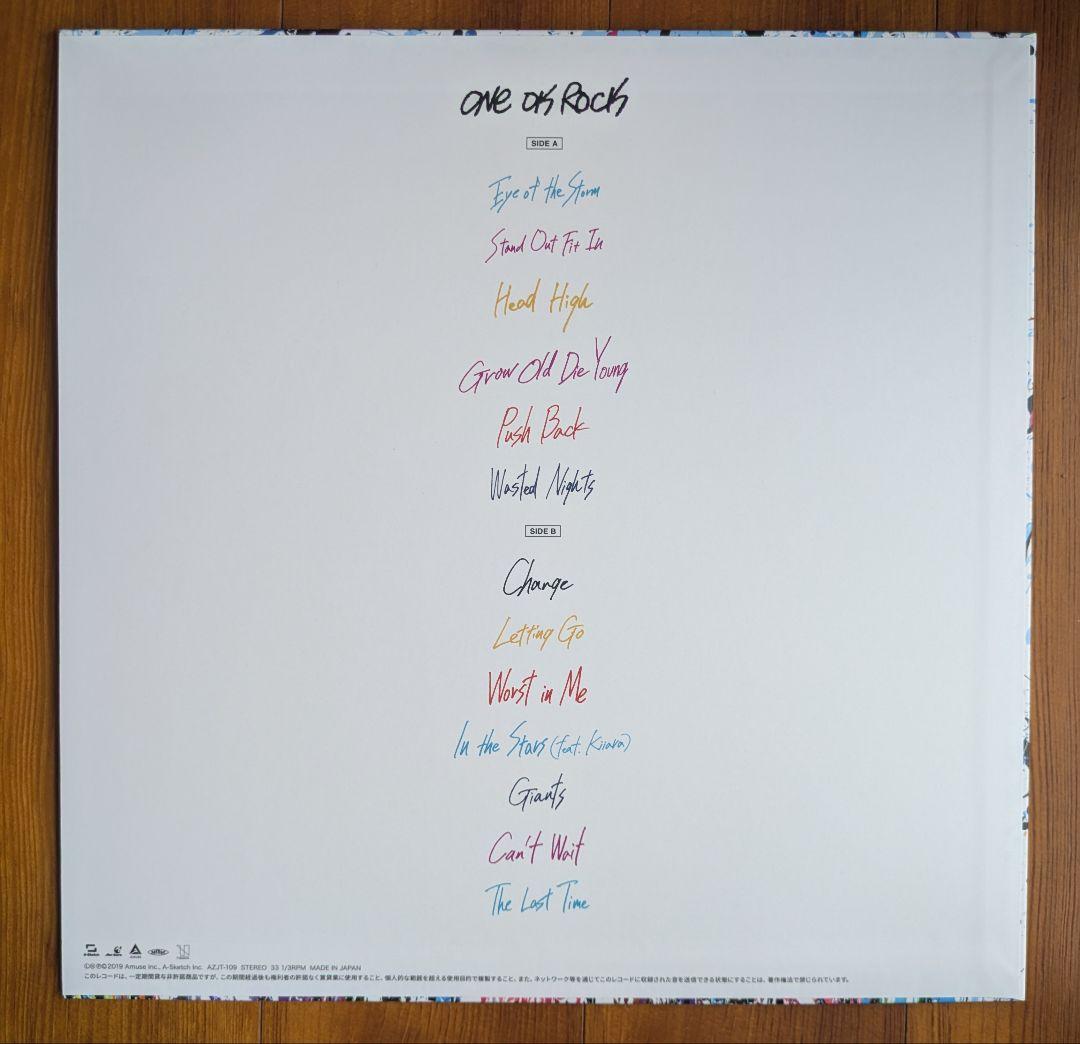 ONE OK ROCK
SIDE A
Eye of the Storm
Stand Out Fit In
Head High
Grow Old Die Young
Push Back
Wasted Nights
SIDE B
Change
Letting Go
Worst in Me
In the Stars (feat. Kiiara)
Giants
Can't Wait
The Last Time
A-Sketch
AMUSE
Ⓒ®℗Ⓒ2019 Amuse Inc., A-Sketch Inc. AZJT-109 STEREO 33 1/3RPM MADE IN JAPAN
このレコードは、一定期間貸与非許諾商品ですが、この期間経過後も権利者の許諾なく賃貸業に使用すること、個人的な範囲を超える使用目的で複製すること、また、ネットワーク等を通じてこのレコードに収録された音を送信できる状態にすることは、著作権法で禁じられています。